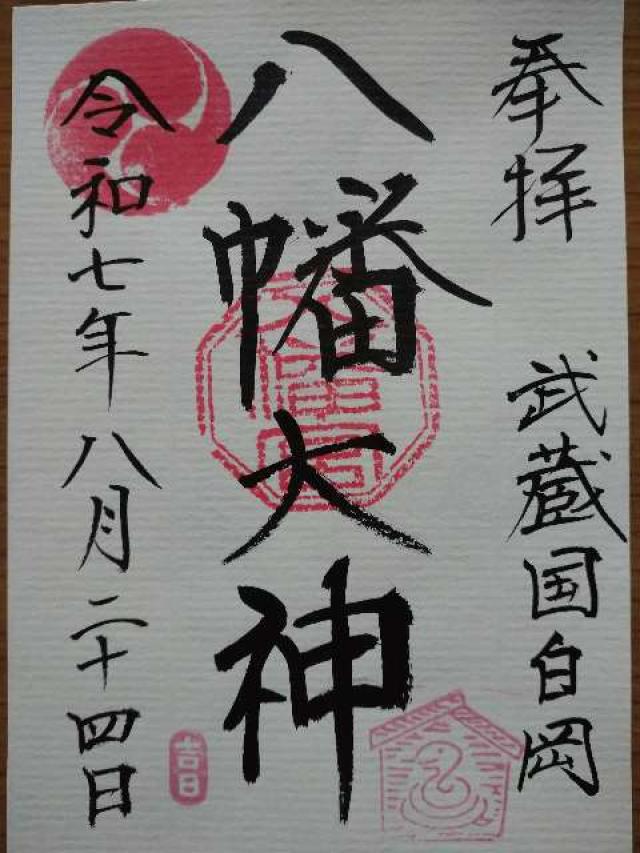 奉拝
武蔵国白岡
八幡大神
令和七年八月二十四日
吉日